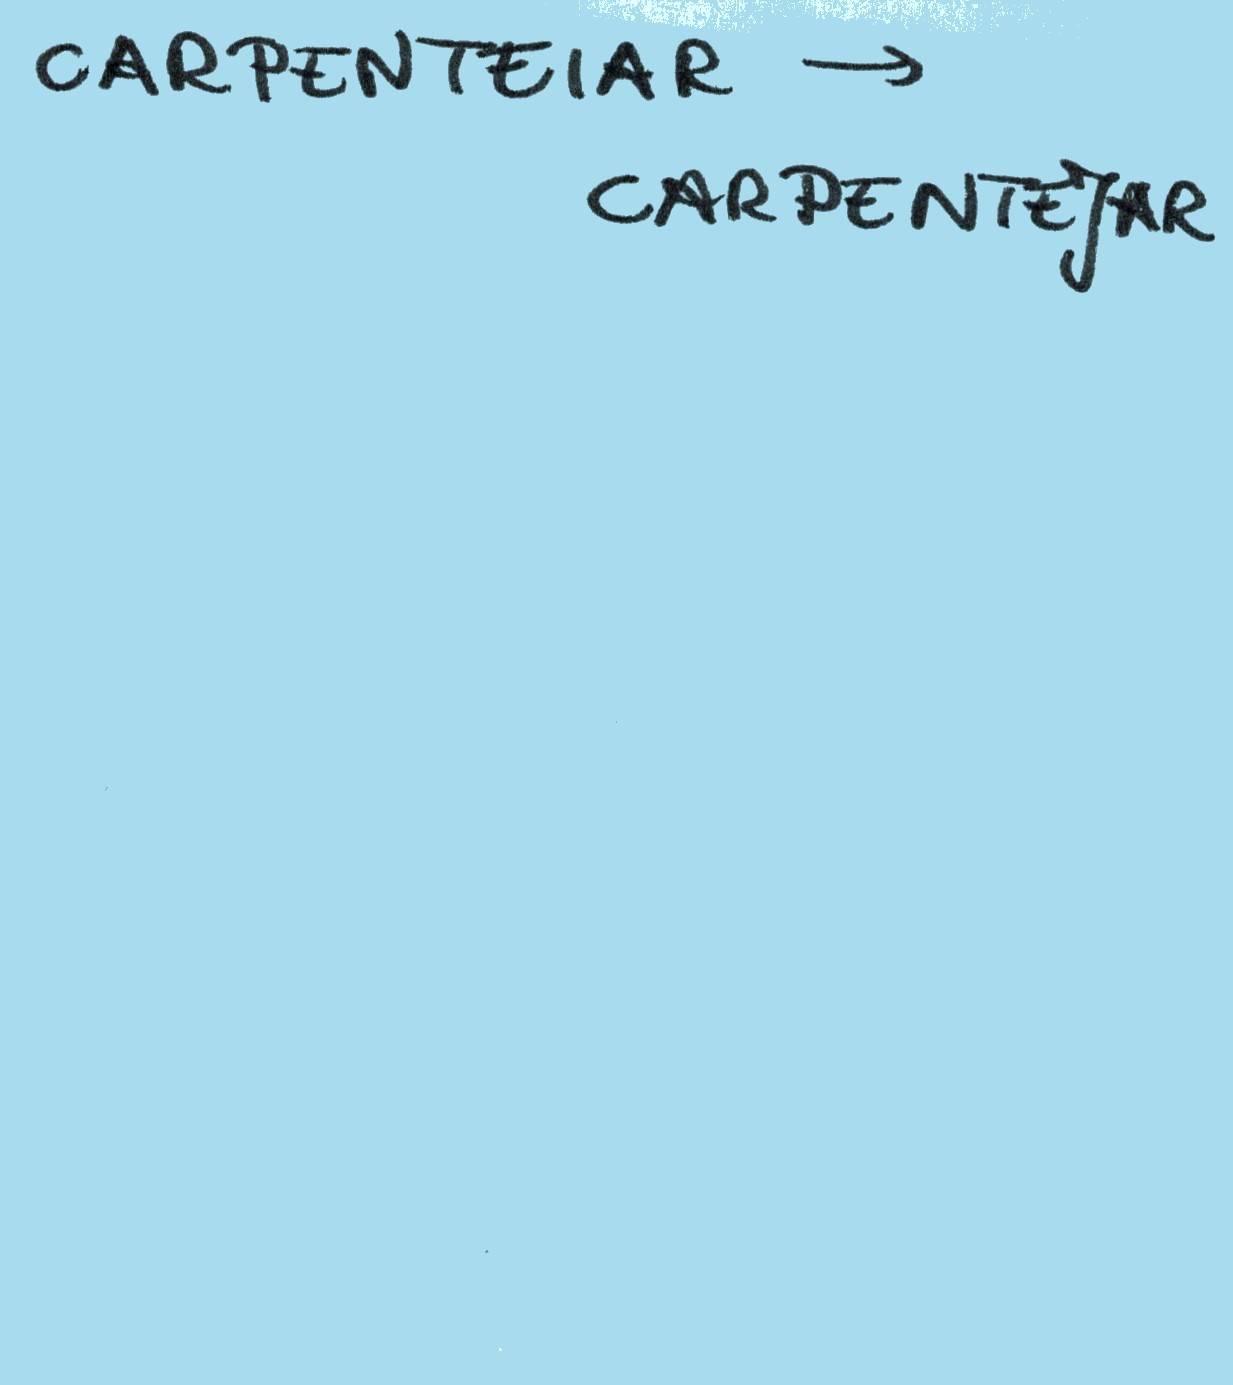 CARPENTEIAR →
CARPENTEJAR